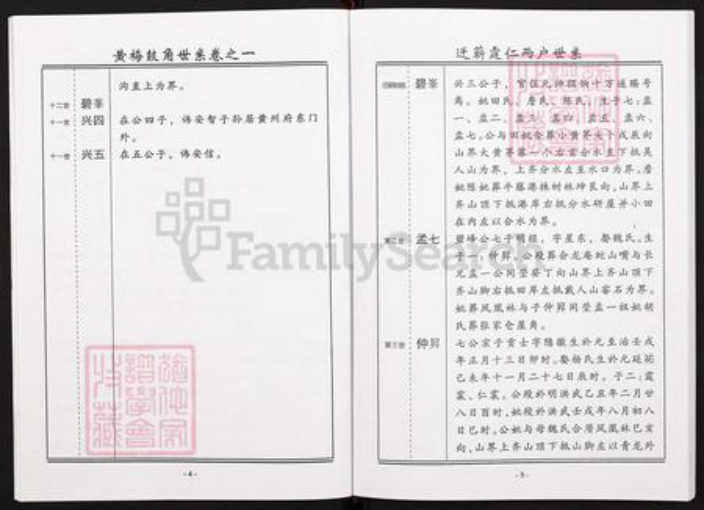 黄梅鼓角世系卷之一
沟直上为界。
十二世 碧峯
十一世 兴四 在公四子，讳安智子孙居黄州府东门
外。
十一世 兴五 在五公子，讳安信。
-4-
迁蕲霆仁两户世系
碧峯 兴三公子，官伍元帅
号。姚田氏、詹氏、陈氏。生子七：孟
一、孟二、孟三、孟四、孟五、孟六、
孟七。公与田姚合葬小黄茅大下戍辰向
人山为界，上齐分水左至水口为界。詹
姚陈姚葬牛藤港株树林坤艮向，山界上
齐山顶下抵港岸右抵分水研崖并小田
在内左以合水为界。
第二世 孟七 碧峰公七子明经，字星东，娶魏氏。生
子一，仲昇。公殁葬会龙庵蛇山嘴与长
兄孟一公同茔癸丁向山界上齐山顶下
齐山脚右抵田岸左抵戴人山窑石为界。
姚葬凤凰林与子仲昇同茔孟一祖姚胡
氏葬张家仓屋角。
第三世 仲昇 七公宗子贡士字隐徽生於元至治壬戌
年正月十三日卯时。娶杨氏生於元延祐
己未年十一月二十七日辰时。子二：霆
震、仁震。公殁於明洪武乙丑年二月廿
八日酉时，姚殁於洪武壬戌年八月初八
日巳时。公姚与母魏氏合厝凤凰林巳亥
向，山界上齐山顶下抵山脚左以青龙外
-5-
FamilySearch